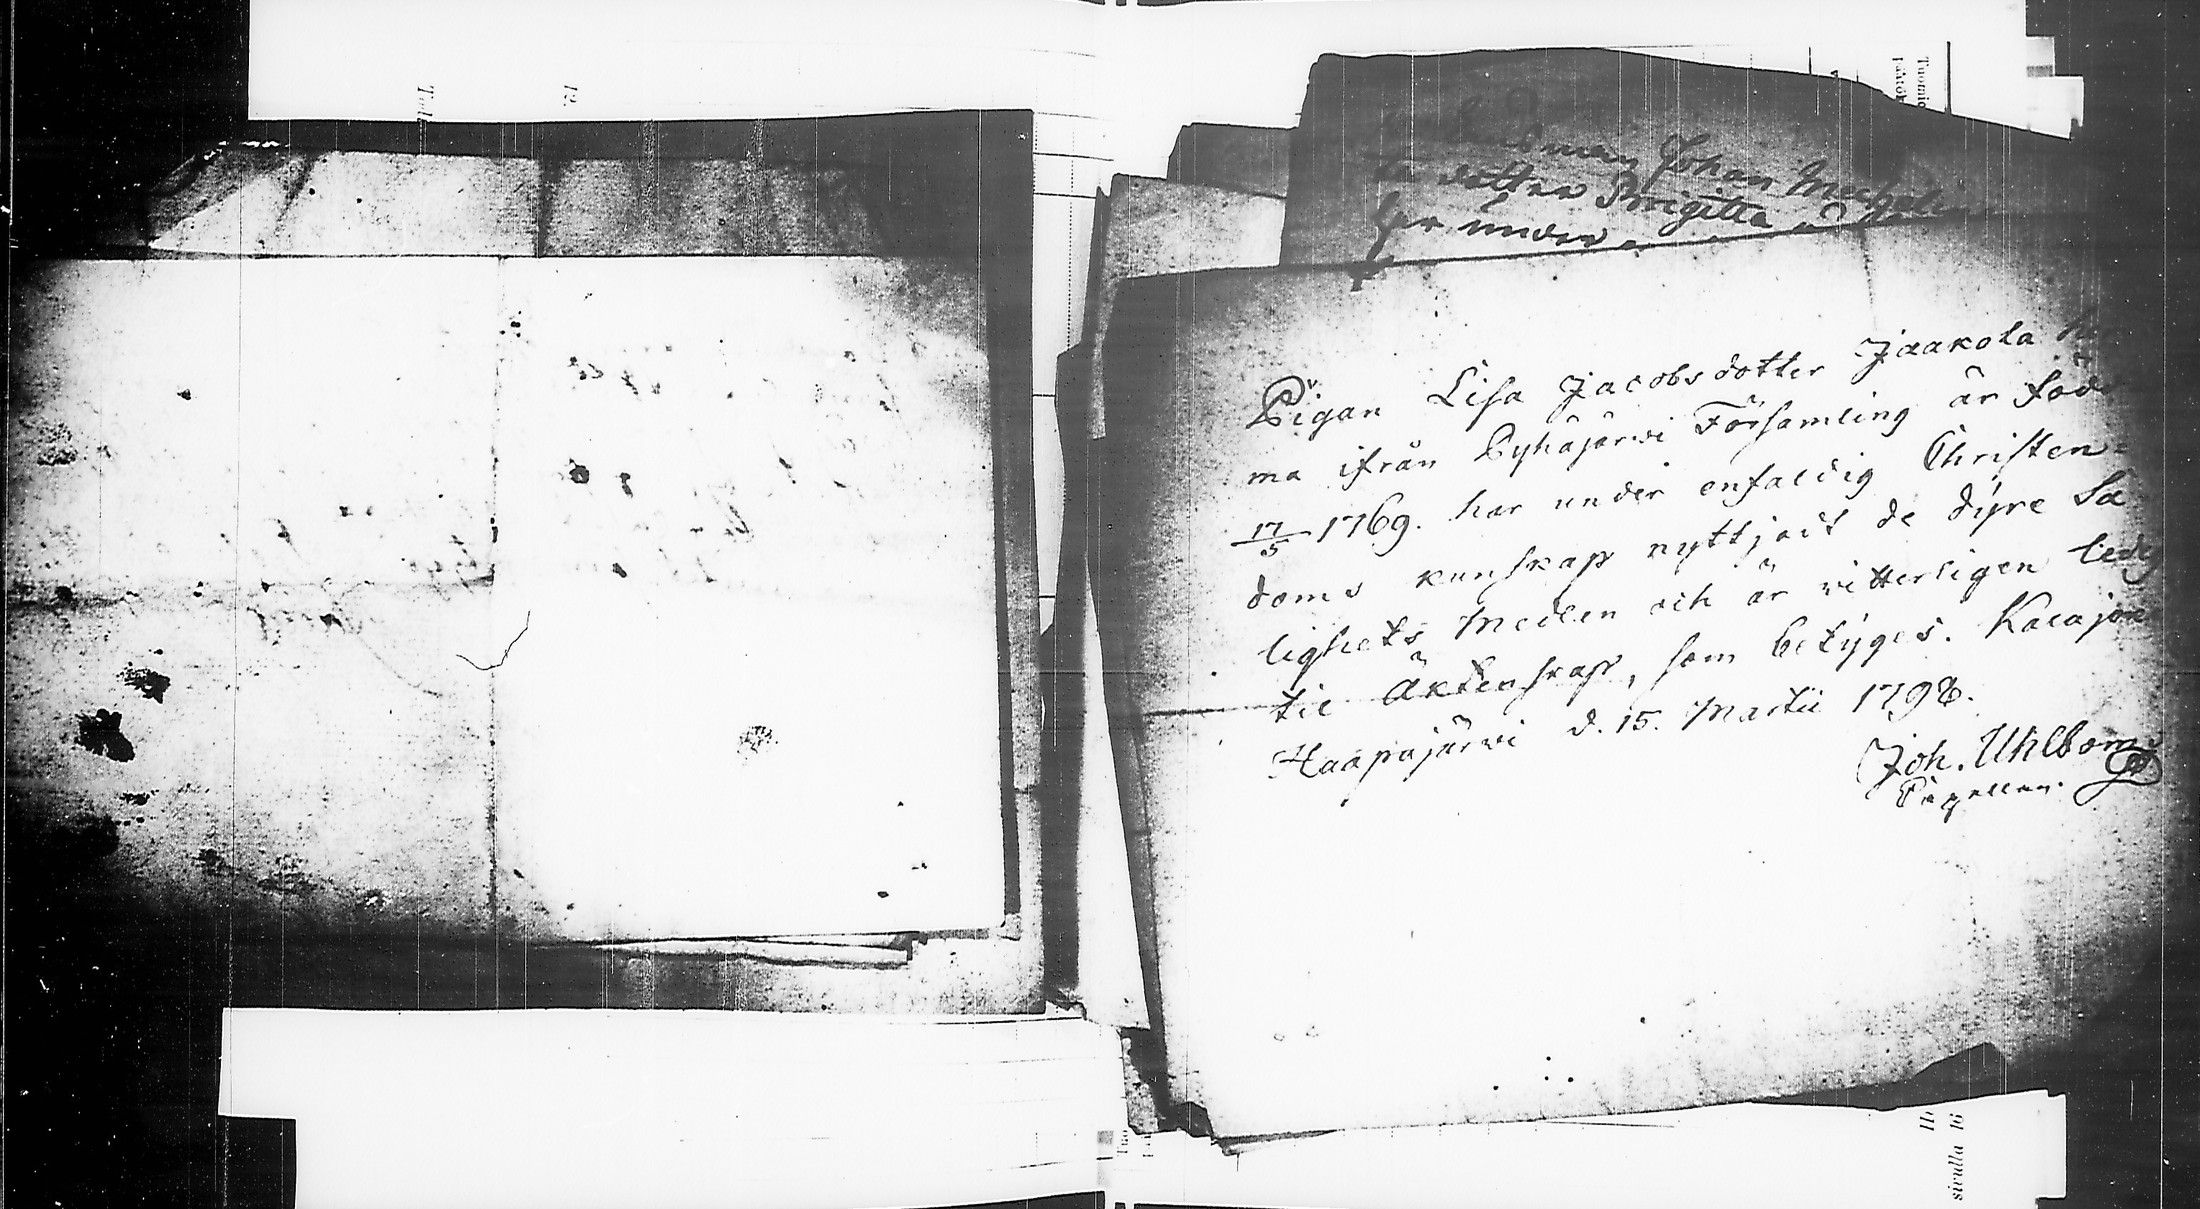 Johan Michels
dotter Brigitta
har under
Pigan Lisa Jacobsdotter Jaakola
ma ifrån Pyhäjärwi Församling är föd
17/5 1769. har under enfaldig Christen=
doms kunskap nyttjadt de dyre Sa
lighets Medlen och är witterligen ledig
til Äktenskap, som betyges. Kalajoki
Haapajärwi d. 15. Martii 1798.
Joh. Uhlbom
Capellan.
Tuomio
12.
sivulla 16